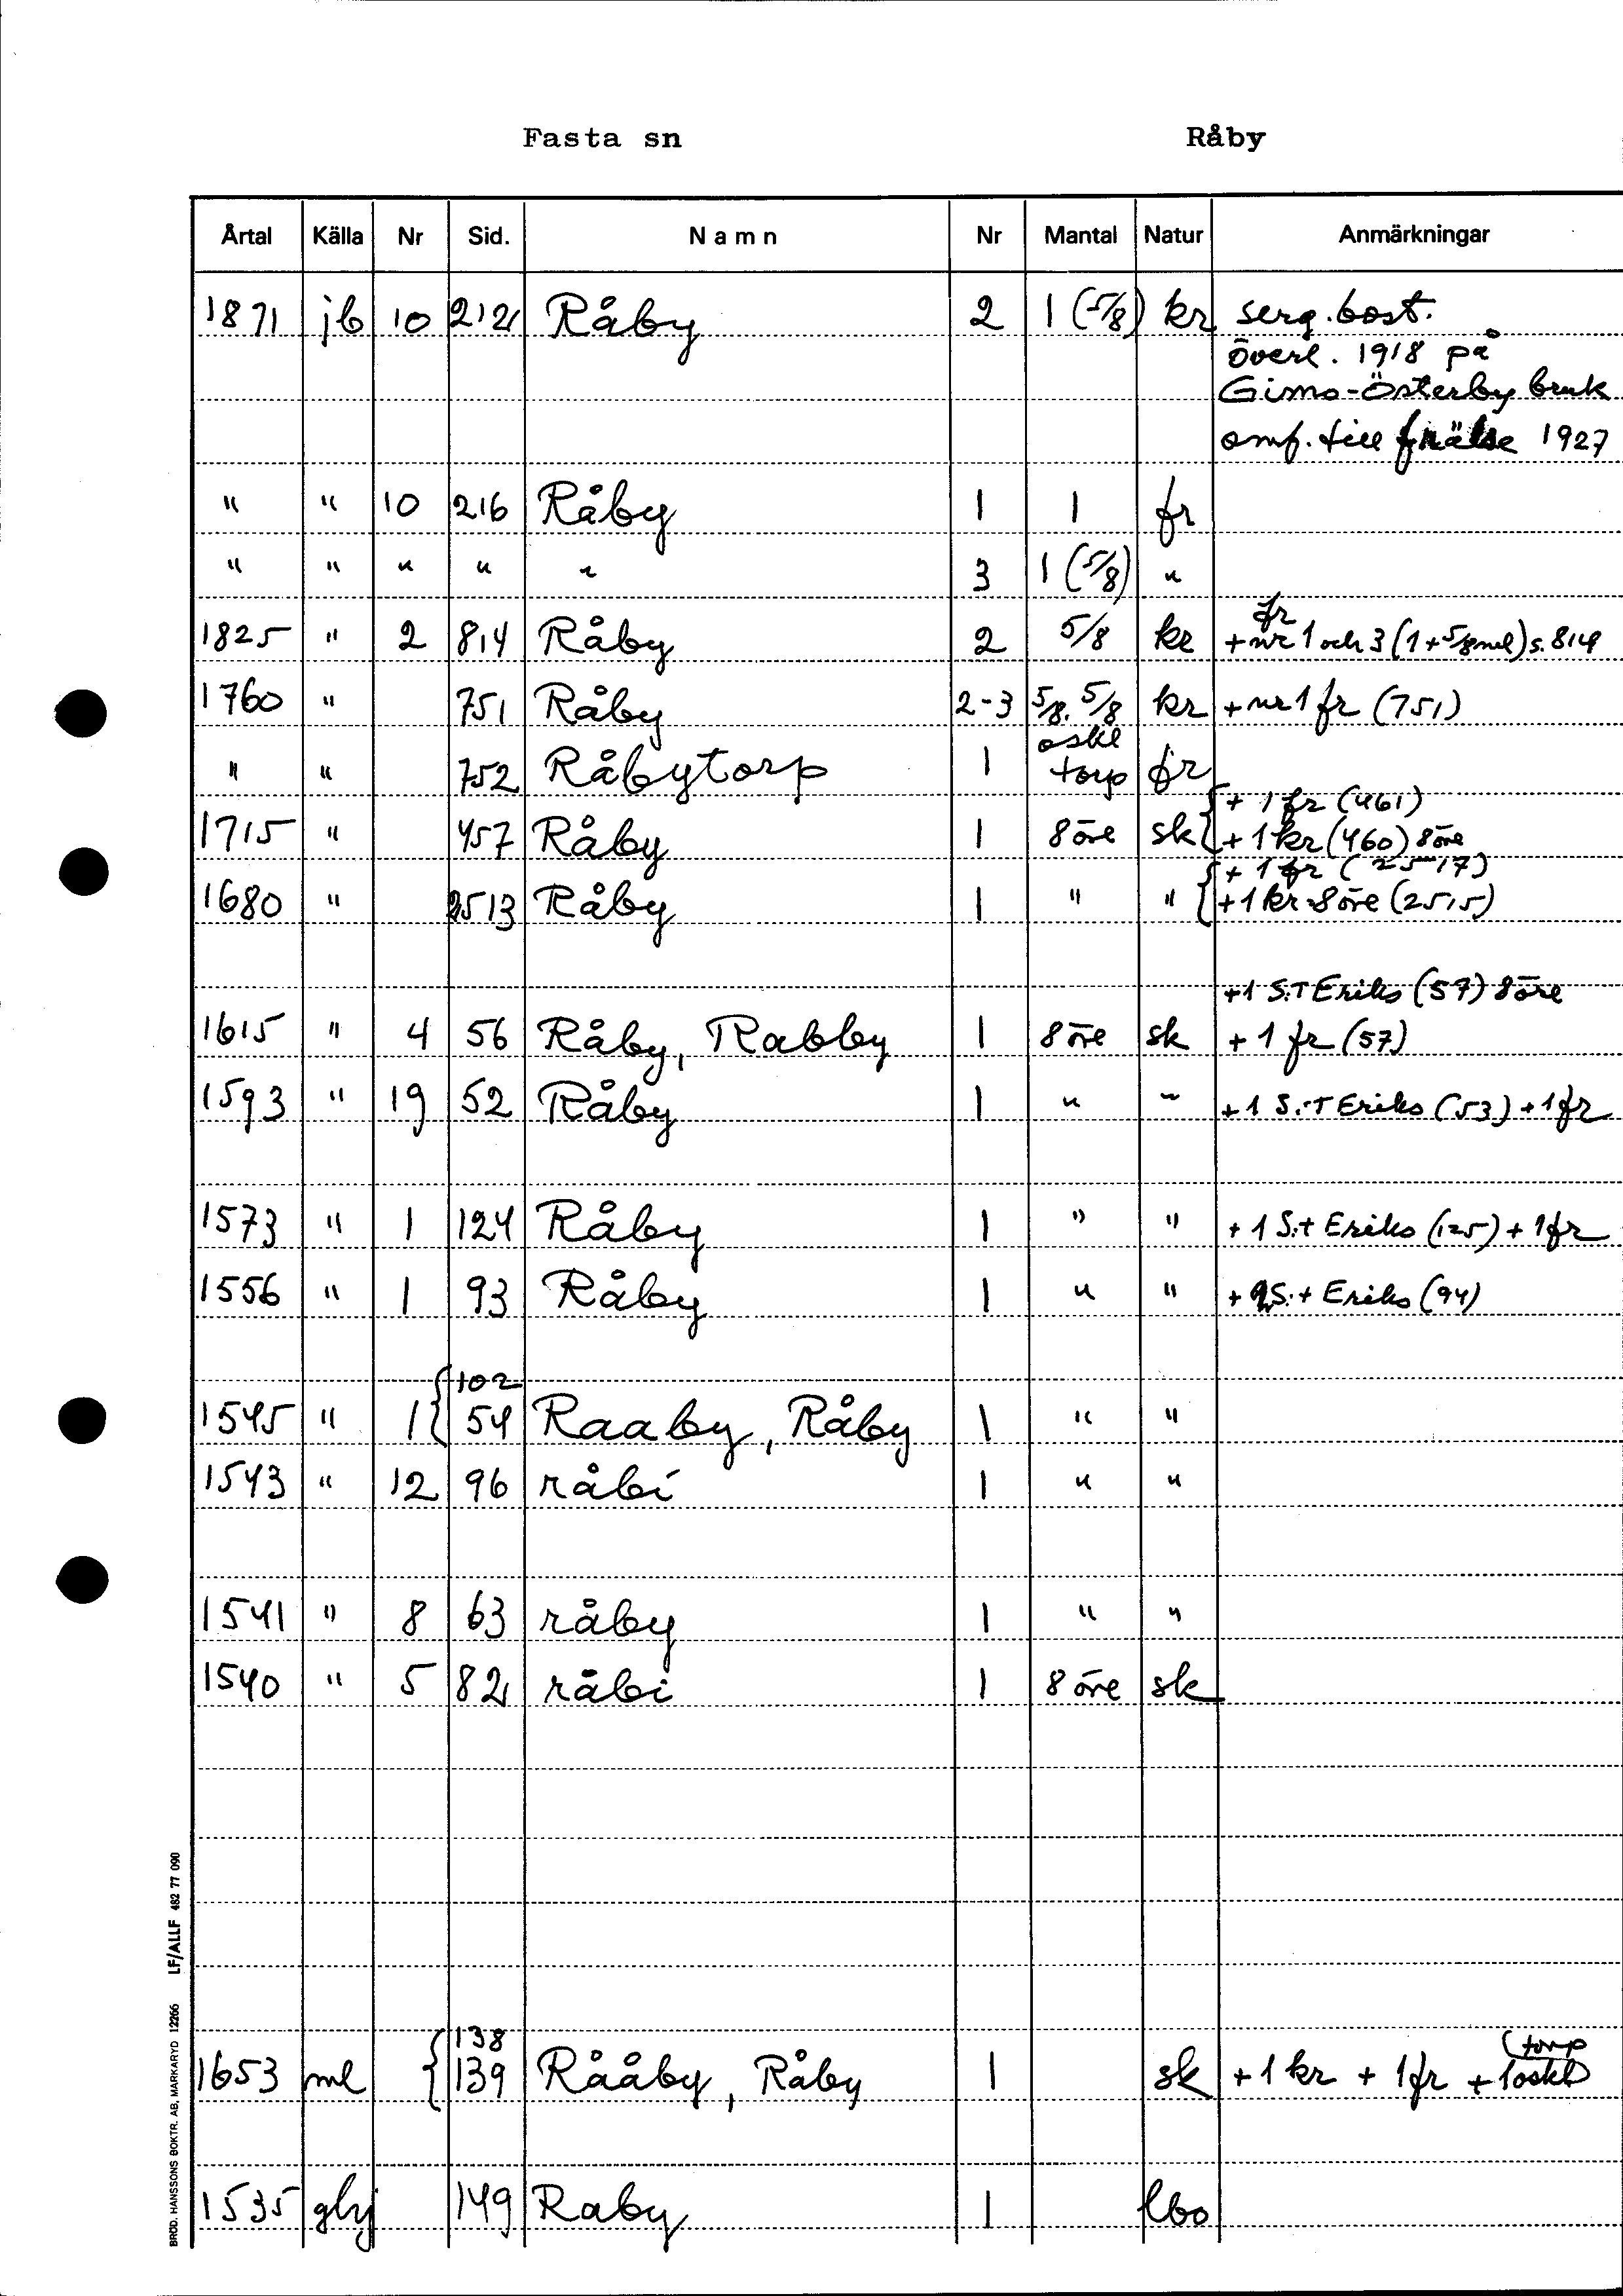 Fasta sn Råby
Årtal Källa Nr Sid. Namn Nr Mantal Natur Anmärkningar
1871 jb 10 212 Råby 2 1 (5/8) kr serg.bost.
överl. 1918 på
Gimo-Österby bruk
omf. till frälse 1927
" " 10 216 Råby 1 1 fr
" " " " " 3 1 (5/8) "
fr
1825 " 2 814 Råby 2 5/8 kr + nr 1 och 3 (1 + 5/8 ml) s. 814
1760 " 751 Råby 2-3 5/8. 5/8 kr + nr 1 fr (751)
oskl
" " 752 Råbytorp 1 torp fr
+ 1 fr (461)
1715 " 457 Råby 1 8 öre sk + 1 kr (460) 8 öre
+ 1 fr (2517)
1680 " 2513 Råby 1 " " + 1 kr 8 öre (2515)
+1 S:T Eriks (57) 8 öre
1615 " 4 56 Råby, Rabby 1 8 öre sk + 1 fr (57)
1593 " 19 52 Råby 1 " " +1 S:T Eriks (53) + 1 fr
1573 " 1 124 Råby 1 " " + 1 S:t Eriks (125) + 1 fr
1556 " 1 93 Råby 1 " " + S:t Eriks (94)
102
1545 " 1 54 Raaby, Råby 1 " "
1543 " 12 96 råbi 1 " "
1541 " 8 63 råby 1 " "
1540 " 5 82 råbi 1 8 öre sk
138 (torp
1653 ml 139 Rååby, Råby 1 sk + 1 kr + 1 fr + 1 oskl
1535 glj 149 Raby 1 lbo
BRÖD. HANSSONS BOKTR. AB, MARKARYD 12266 LF/ALLF 482 77 090